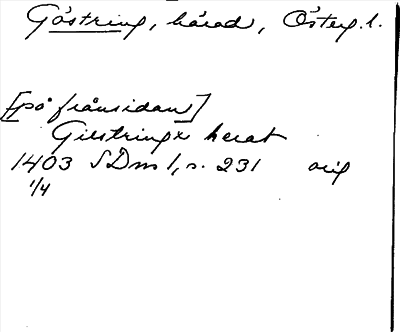 Göstring, härad, Österg.l.
[på frånsidan]
Gilstringx herat
1403 SDns 1, s. 231 orig
1/4